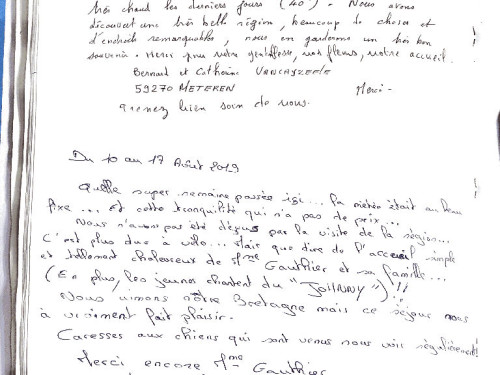 très chaud les derniers jours (40°). Nous avons
découvert une très belle région, beaucoup de choses et
d'endroits remarquables, nous en garderons un très bon
souvenir. Merci pour votre gentillesse, vos fleurs, votre accueil.
Bernard et Catherine
59270 METEREN Merci -
Prenez bien soin de vous.
Du 10 au 17 Août 2019
Quelle super semaine passée ici... La météo était au beau
fixe... et cette tranquilité qui n'a pas de prix...
Nous n'avons pas été déçus par la visite de la région...
C'est plus dur à vélo... Mais que dire de l'accueil simple
et tellement chaleureux de Mme Gauthier et sa famille...
(En plus, les jeunes chantent du "JOHNNY") !!
Nous aimons nôtre Bretagne mais ce séjour nous
à vraiment fait plaisir.
Caresses aux chiens qui sont venus nous voir régulièrement!
Merci encore Mme Gauthier